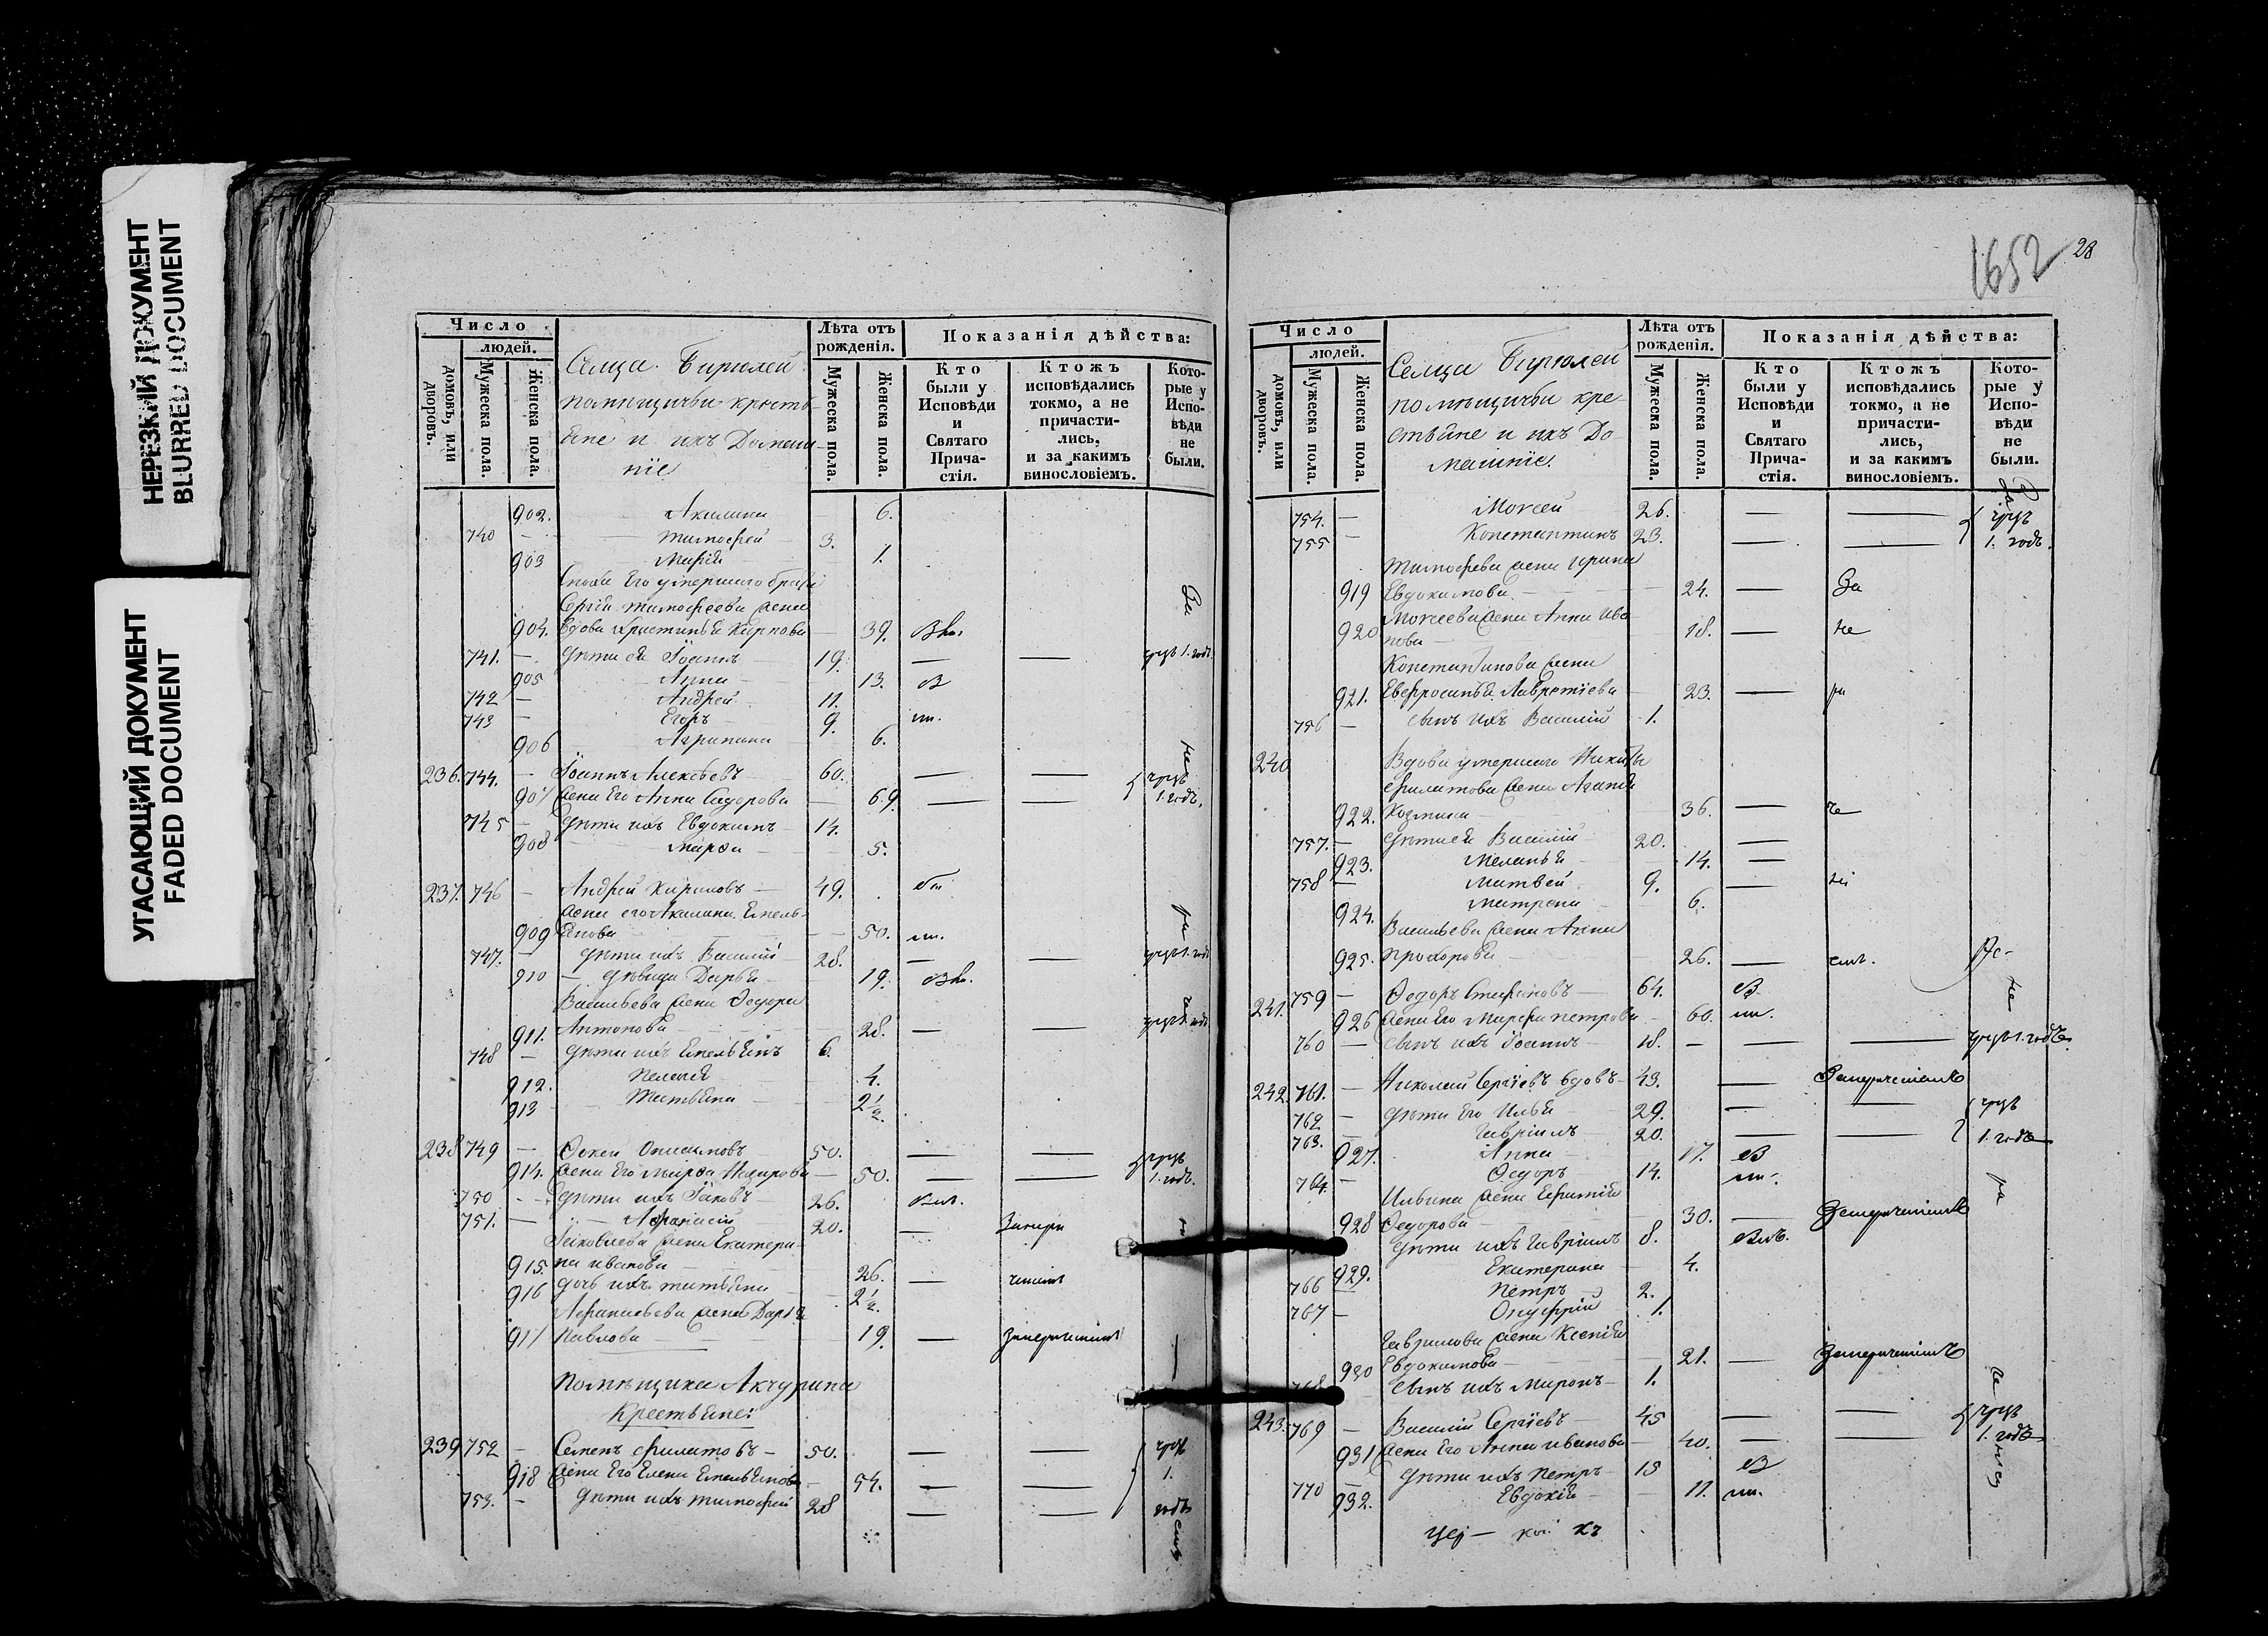 НЕРЕЗКИЙ ДОКУМЕНТ
BLURRED DOCUMENT
УГАСАЮЩИЙ ДОКУМЕНТ
FADED DOCUMENT
Число
людей.
домовъ, или дворовъ.
Мужеска пола.
Женска пола.
Селца Бирюлей
помѣщичьи крестья-
не и ихъ Домаш-
ніе
Лѣта отъ рожденія.
Мужеска пола.
Женска пола.
Показанія дѣйства:
Кто были у Исповѣди и Святаго Прича-стія.
Ктожъ исповѣдались токмо, а не причасти-лись, и за какимъ винословіемъ.
Кото-рые у Испо-вѣди не были.
902. Акилина 6.
740 — Тимофей 3.
903 Марія 1.
Сноха Его умершаго брата
Сергія Тимофеева жена
904. вдова Христинья Карпова 39.
741. — дѣти ея Іоаннъ 19. — —
905 Анна 13.
742 — Андрей 11.
743 — Егоръ 9.
906 Агрипина 6.
236. 744. — Іоаннъ Алексѣевъ 60. — —
907 жена Его Анна Сидорова 69. — — 1. годъ.
745 — дѣти ихъ Евдокимъ 14.
908 Марѳа 5.
237. 746 — Андрей Кириловъ 49.
жена его Акилина Емель-
909 янова 50.
747. — дѣти ихъ Василій 28. — —
910 — дѣвица Дарья 19.
Васильева жена Ѳедора
911. Антонова 28. — —
748 — дѣти ихъ Емельянъ 6.
912. Пелагея 4.
913 Татьяна 2 1/2.
238 749 — Ѳокей Онисимовъ 50. — —
914. жена Его Марѳа Назарова 50. — — 1. годъ.
750 — дѣти ихъ Іаковъ 26.
751. — Афанасій 20. —
Іаковлева жена Екатери-
915. на Иванова 26. —
916 дочь ихъ Татьяна 2 1/2.
Афанасьева жена Дарья
917 Павлова 19. —
Помѣщика Акчурина
Крестьяне:
239 752 — Семенъ Филатовъ 50. — —
918 жена Его Елена Емельянова 54. — — 1.
753. — дѣти ихъ Тимофей 28 — — годъ
1652 28
Число
людей.
домовъ, или дворовъ.
Мужеска пола.
Женска пола.
Селца Бирюлей
помѣщичьи кре-
стьяне и ихъ До-
машніе.
Лѣта отъ рожденія.
Мужеска пола.
Женска пола.
Показанія дѣйства:
Кто были у Исповѣди и Святаго Прича-стія.
Ктожъ исповѣдались токмо, а не причасти-лись, и за какимъ винословіемъ.
Кото-рые у Испо-вѣди не были.
754. — Моисей 26. — —
755 — Константинъ 23. — — 1. годъ.
Тимофеева жена Ирина
919 Евдокимова 24. — За
Моисеева жена Анна Ива
920 нова 18. — не
Константинова жена
921. Евфросинья Лаврентіева 23. — ра
756 — сынъ ихъ Василій 1.
240 Вдова умершаго Никиты
Филатова жена Агапія
922. Козмина 36. —
757. — дѣти ея Василій 20. —
923. Меланья 14. —
758 — Матвей 9. —
924. Матрена 6.
Васильева жена Анна
925. Прохорова 26. —
241. 759 — Ѳедоръ Стефановъ 64.
926 жена Его Марфа Петрова 60.
760 — сынъ ихъ Іоаннъ 18. — — —
242. 761. — Николай Сергіевъ вдовъ 43. —
762 — дѣти Его Илья 29. — —
763. — Гавріилъ 20. — — 1. годъ
927. Анна 17.
764. — Ѳедоръ 14.
Ильина жена Ефимія
928 Ѳедорова 30. —
дѣти ихъ Гавріилъ 8.
929. Екатерина 4.
766 Петръ 2.
767 — Онуфрій 1.
Гаврилова жена Ксенія
930 Евдокимова 21. —
сынъ ихъ Миронъ 1.
243. 769 — Василій Сергіевъ 45 — —
931 жена Его Анна Иванова 40. — — 1. годъ
770 — дѣти ихъ Петръ 15
932. Евдокія 11.